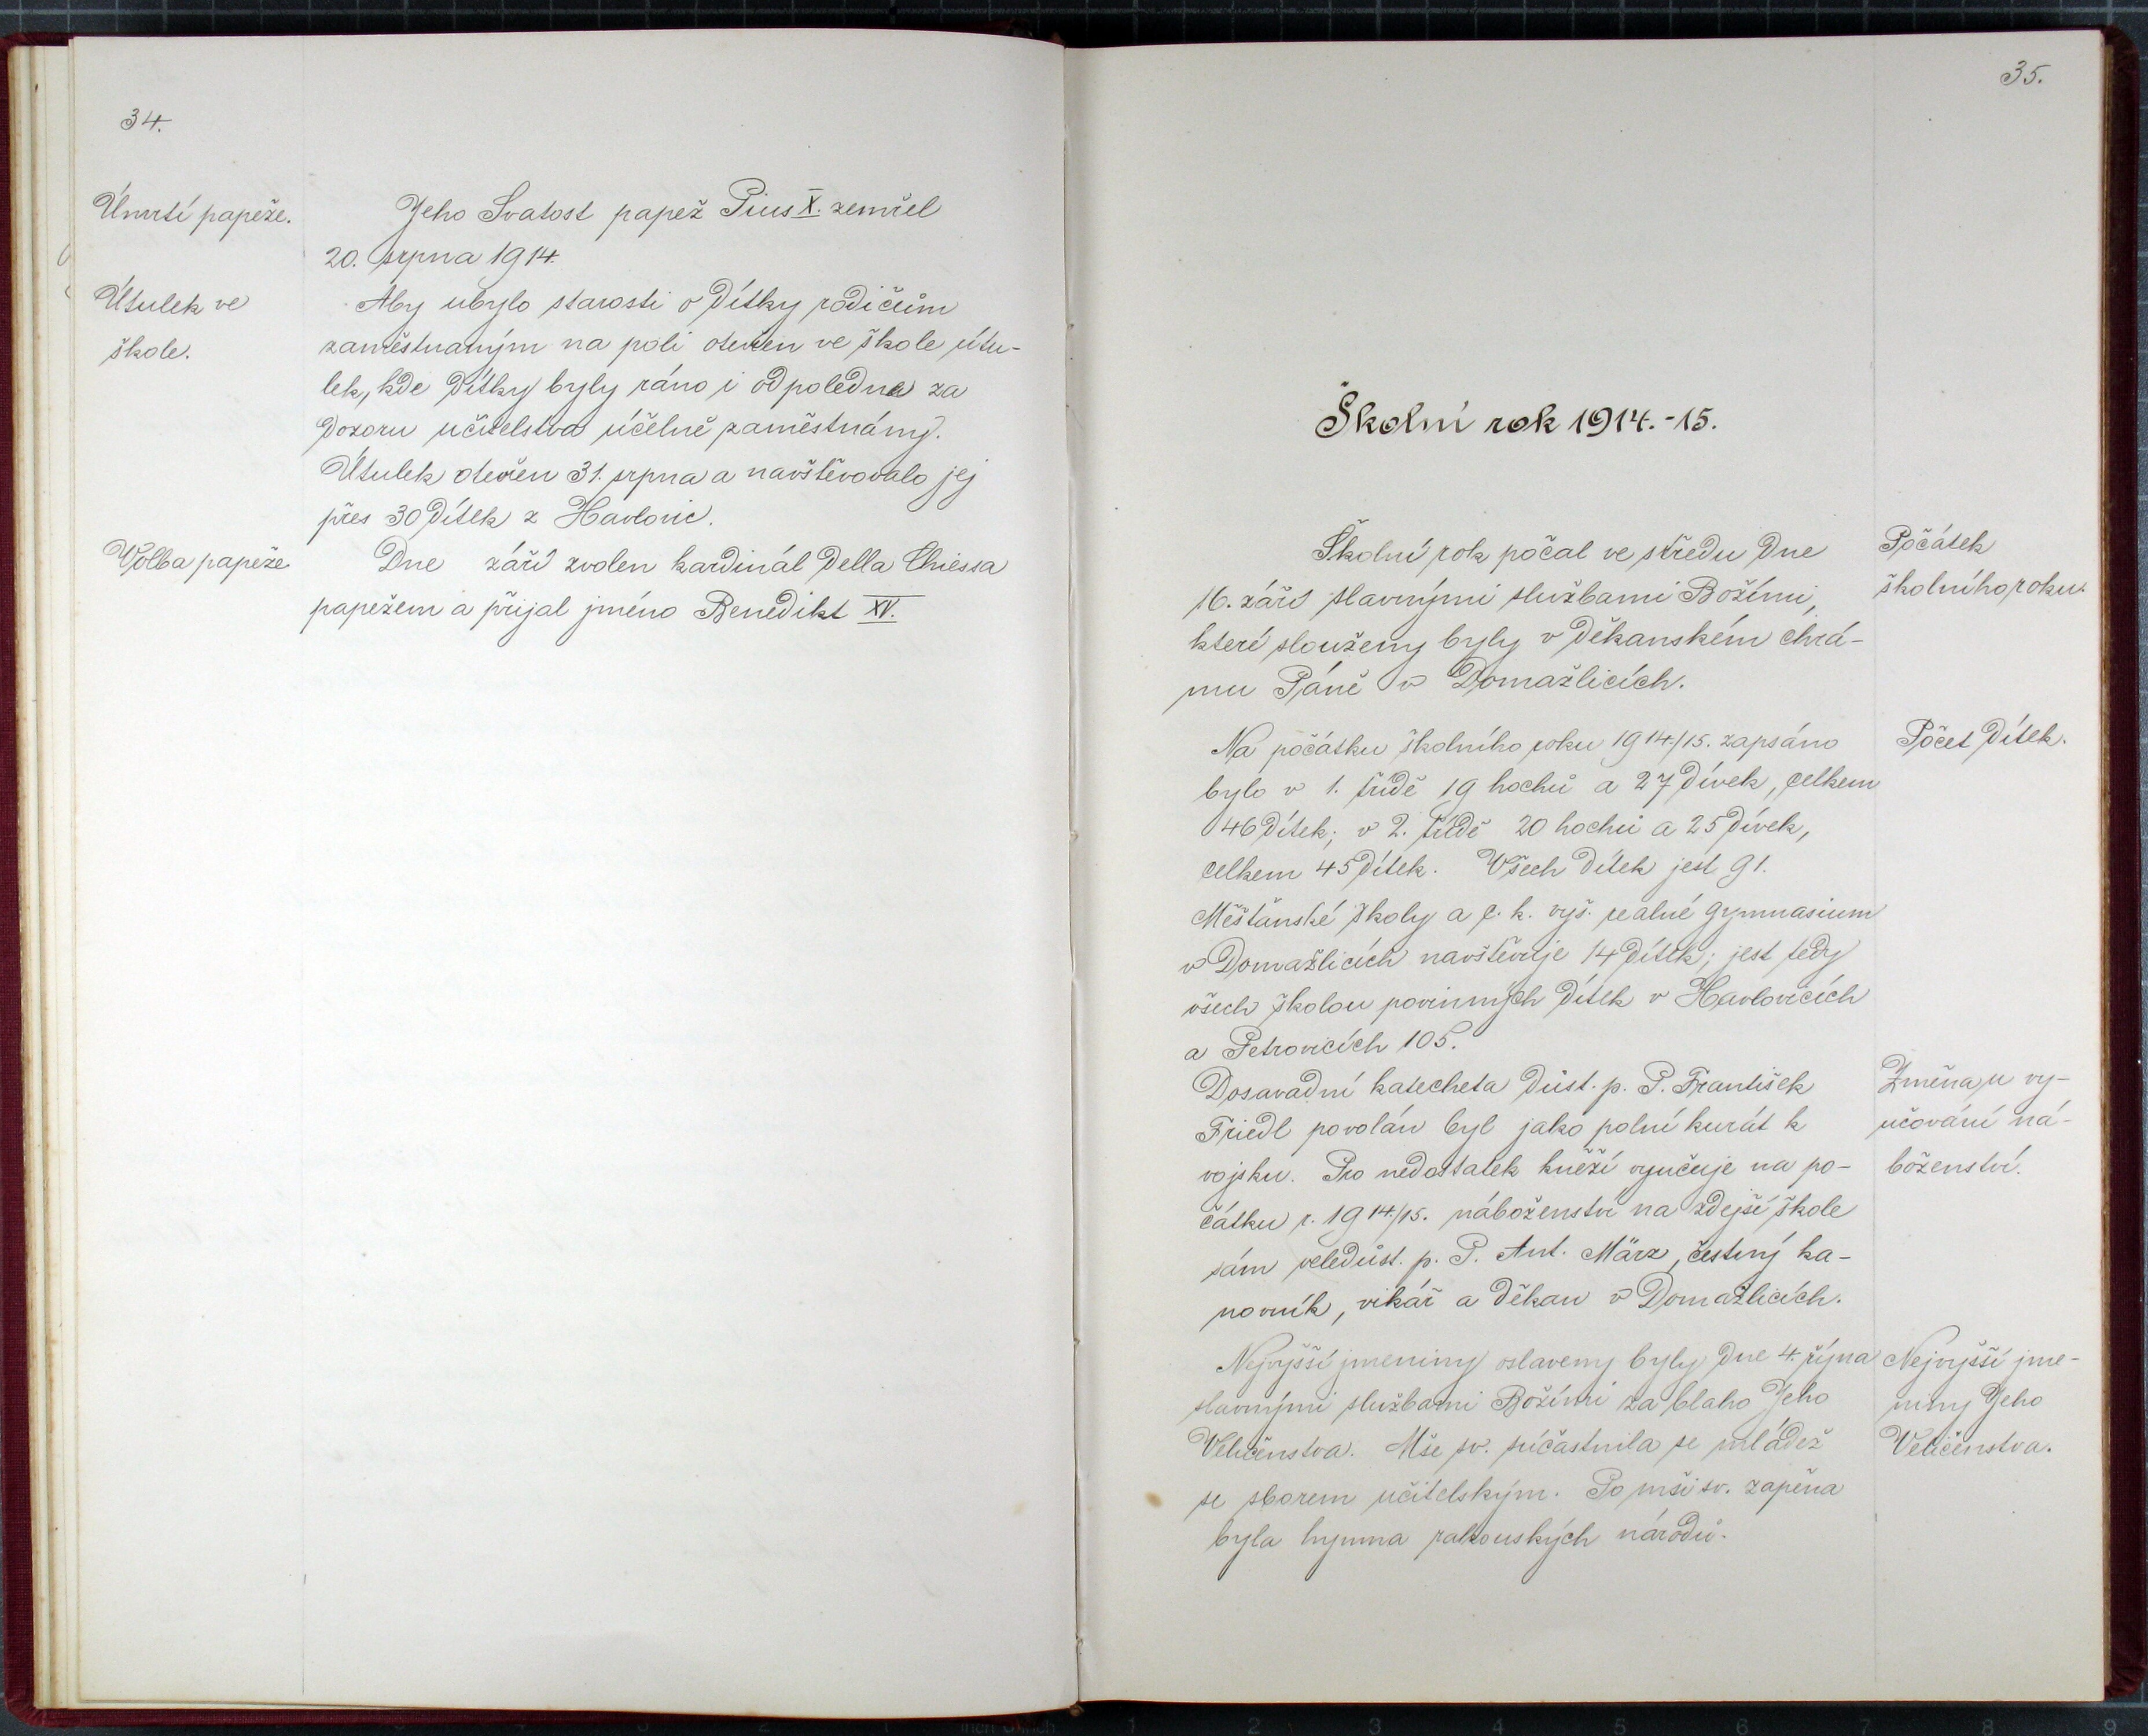 34.
Úmrtí papeže.
Jeho Svatost papež Pius X. zemřel
20. srpna 1914.
Útulek ve
škole.
Aby ubylo starosti o dítky rodičům
zaměstnaným na poli otevřen ve škole útu-
lek, kde dítky byly ráno i odpoledne za
dozoru učitelstva účelně zaměstnány.
Útulek otevřen 31. srpna a navštěvovalo jej
přes 30 dítek z Havlovic.
Volba papeže
Dne září zvolen kardinál Della Chiessa
papežem a přijal jméno Benedikt XV.
35.
Školní rok 1914.-15.
Školní rok počal ve středu dne
16. září slavnými službami Božími,
které slouženy byly v děkanském chrá-
mu Páně v Domažlicích.
Počátek
školního roku.
Na počátku školního roku 1914/15. zapsáno
bylo v 1. třídě 19 hochů a 27 dívek, celkem
46 dítek; v 2. třídě 20 hochů a 25 dívek,
celkem 45 dítek. Všech dítek jest 91.
Měšťanské školy a c. k. vyš. realné gymnasium
v Domažlicích navštěvuje 14 dítek; jest tedy
všech školou povinných dítek v Havlovicích
a Petrovicích 105.
Počet dítek.
Dosavadní katecheta důst. p. P. František
Friedl povolán byl jako polní kurát k
vojsku. Pro nedostatek kněží vyučuje na po-
čátku r. 1914/15. náboženství na zdejší škole
sám veledůst. p. P. Ant. März, čestný ka-
novník, vikář a děkan v Domažlicích.
Změna u vy-
učování ná-
boženství.
Nejvyšší jmeniny oslaveny byly dne 4. října
slavnými službami Božími za blaho Jeho
Veličenstva. Mše sv. súčastnila se mládež
se sborem učitelským. Po mši sv. zapěna
byla hymna rakouských národů.
Nejvyšší jme-
niny Jeho
Veličenstva.